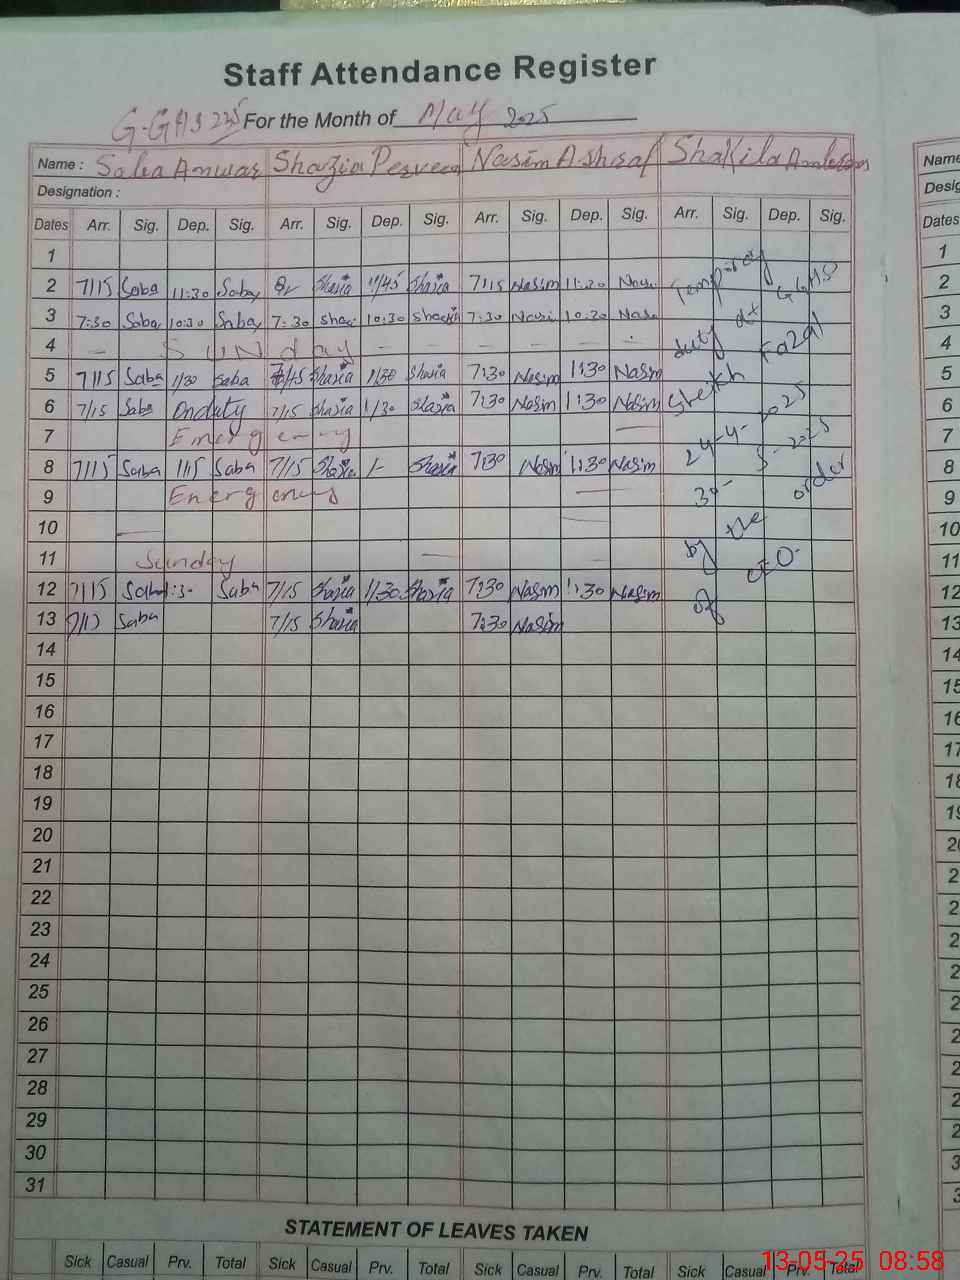 Staff Attendance Register
For the Month of May 2025
Name : Saba Anwar Shazia Perveen Nasim Ashraf Shakila
Designation :
Dates Arr. Sig. Dep. Sig. Arr. Sig. Dep. Sig. Arr. Sig. Dep. Sig. Arr. Sig. Dep. Sig.
1
2 7/15 Saba 11:30 Saba Shazia 11/45 Shazia 7:15 Nasim 11:30
3 7:30 Saba 10:30 Saba 7:30 10:30 7:30 10:30
4 – SUNday – – – – –
5 7/15 Saba 1/30 Saba Shazia 1/30 Shazia 7:30 Nasim 1:30 Nasim
6 7/15 Saba Onduty 7/15 Shazia 1/30 Shazia 7:30 Nasim 1:30 Nasim
7 Emergency
8 7/15 Saba 1/15 Saba 7/15 Shazia 1/- Shazia 7:30 Nasim 1:30 Nasim
9 Energency
10
11 Sunday
12 7/15 Saba Saba 7/15 Shazia 1/30 Shazia 7:30 Nasim 1:30 Nasim
13 Saba 7/15 Shazia 7:30 Nasim
duty at GGHS
Fazal
Sheikh
24-4-2025
30-5-2025
by the order
of CEO.
14
15
16
17
18
19
20
21
22
23
24
25
26
27
28
29
30
31
STATEMENT OF LEAVES TAKEN
Sick Casual Prv. Total Sick Casual Prv. Total Sick Casual Prv. Total Sick Casual Prv. Total
Name
Dates
1
2
3
4
5
6
7
8
9
10
11
12
13
14
15
16
17
18
13-05-25 08:58